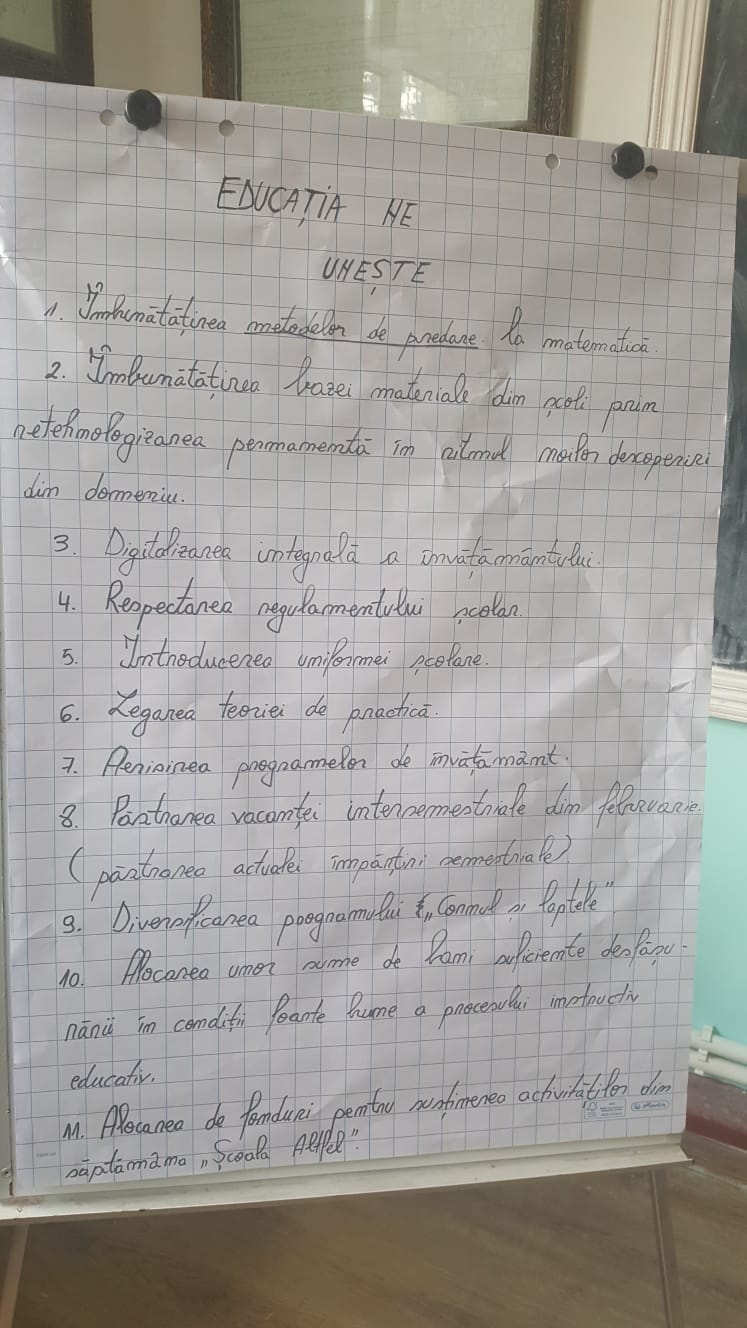 EDUCAȚIA NE
UNEȘTE
1. Îmbunătățirea metodelor de predare la matematică.
2. Îmbunătățirea bazei materiale din școli prin
retehnologizarea permanentă în ritmul noilor descoperiri
din domeniu.
3. Digitalizarea integrală a învățământului.
4. Respectarea regulamentului școlar.
5. Introducerea uniformei școlare.
6. Legarea teoriei de practică.
7. Aerisirea programelor de învățământ.
8. Păstrarea vacanței intersemestriale din februarie.
(păstrarea actualei împărțiri semestriale)
9. Diversificarea programului „Cornul și laptele"
10. Alocarea unor sume de bani suficiente desfășu-
rării în condiții foarte bune a procesului instructiv
educativ.
11. Alocarea de fonduri pentru susținerea activităților din
săptămâna „Școala Altfel".